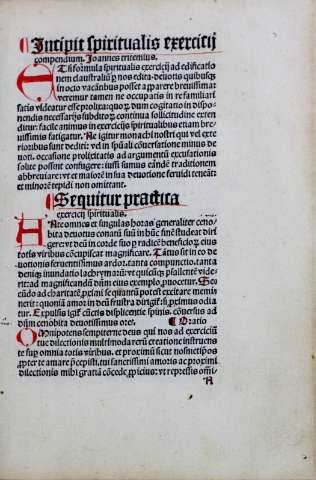 ¶ Incipit spiritualis exercitij
compendium. Joannes tritemius.
Etsi formula spiritualis exercicij ad edificatio
nem claustraliũ ꝑ nos edita: deuotis quibusqꝫ
in ocio vacãtibus posset apparere breuissima:
veremur tamen ne occupatis in refamiliari
satis videatur esse prolixa: quoꝝ dum cogitatio in dispo-
nendis necessarijs subditoꝝ continua sollicitudine exten
ditur: facile animus in exercicijs spiritualibus etiam bre-
uissimis fatigatur. Ne igitur monachi nostri qui vel exte
rioribus sunt dediti: vel in spũali cõuersatione minus de
uoti. occasione prolixitatis ad argumentũ excusationis
solite possent confugere: iussi sumus eandẽ traditionem
abbreuiare: vt et maiores in sua deuotione feruidi teneãt:
et minores tepidi non omittant.
¶ Sequitur practica
exercicij spiritualis.
Ante omnes et singulas horas generaliter ceno-
bita deuotus conatũ suũ in hũc finẽ studeat diri
gere: vt deũ in corde suo ꝑ radicẽ beneficioꝝ eius
totis viribus cõcupiscat magnificare. Tãtus sit in eo de
uotionis feruentissimus ardor. tanta compunctio. tanta
deniqꝫ inundatio lachrymarũ: vt quicũqꝫ psallentẽ vide-
rit: ad magnificandũ dũm eius exemplo, ꝓuocetur. Se-
cũdo ad charitatẽ ꝓximi sequantũ potest excitare memi-
nerit: quoniã amor in deũ frustra dirigit̃: si ꝓximus odia
tur. Expulsis igit̃ cũctis displicentie spinis. cõuersus ad
dũm cenobita deuotissimus oret. ¶ Oratio
Omnipotens sempiterne deus qui nos ad exerciciũ
tue dilectionis multimoda rerũ creatione instruens
te suꝑ omnia totis viribus. et proximũ sicut nosmetipsos
ꝓpter te amare p̃cepisti, tui sanctissimi amoris ac proximi
dilectionis mihi gratiã cõcede ꝓpicius: vt repressis omi
A